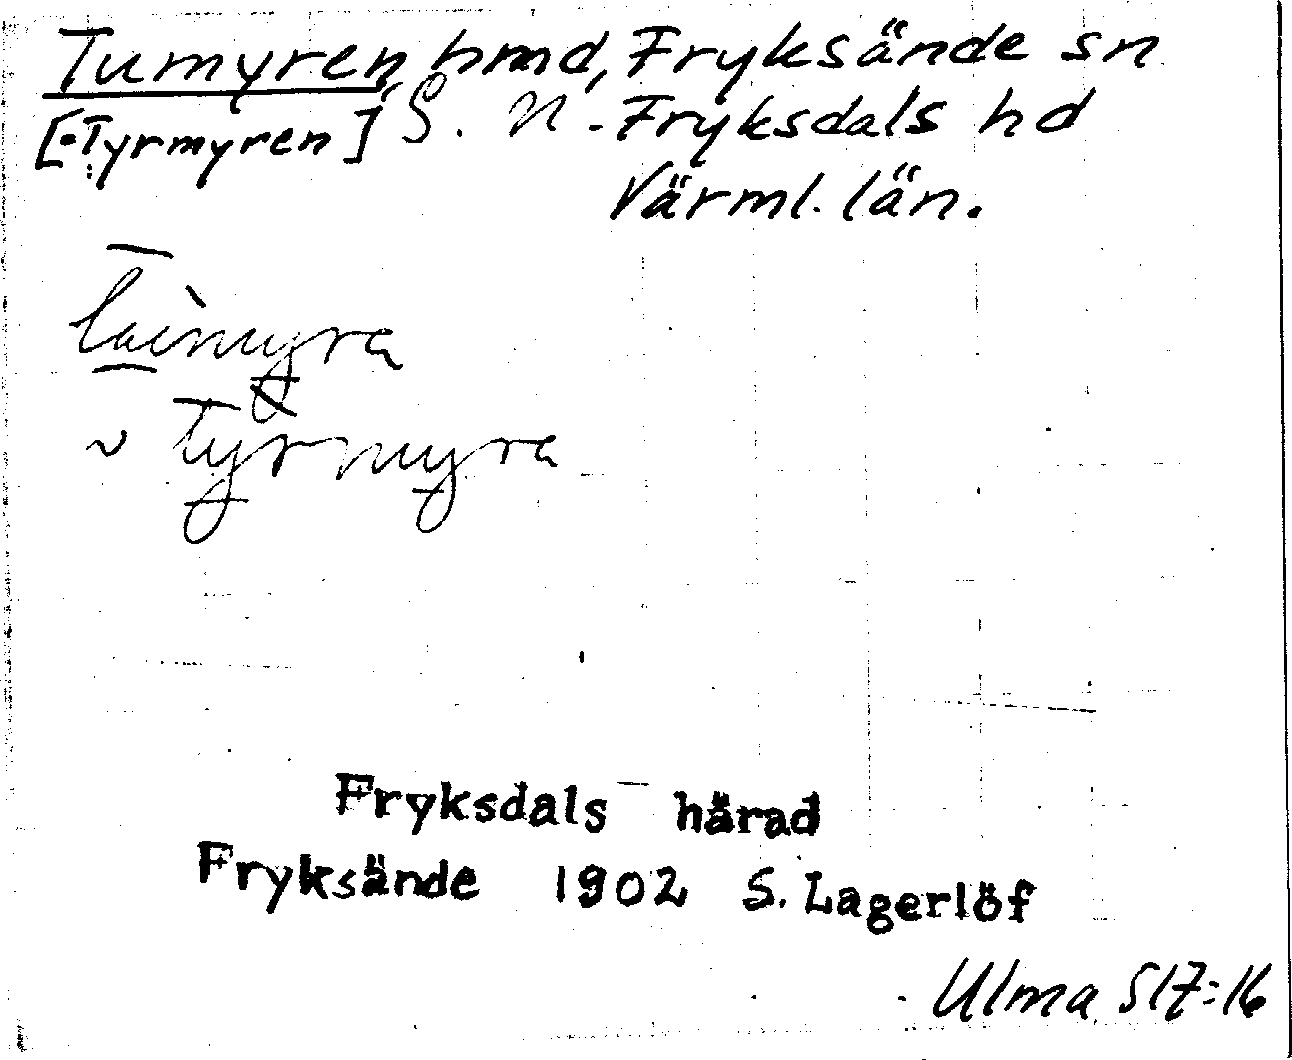 Tumyren, hmd, Fryksände sn
[Tyrmyren] S. N. Fryksdals hd
Värml. län.
~ Tyrmyra
Fryksdals härad
Fryksände 1902 S. Lagerlöf
Ulma 517:16